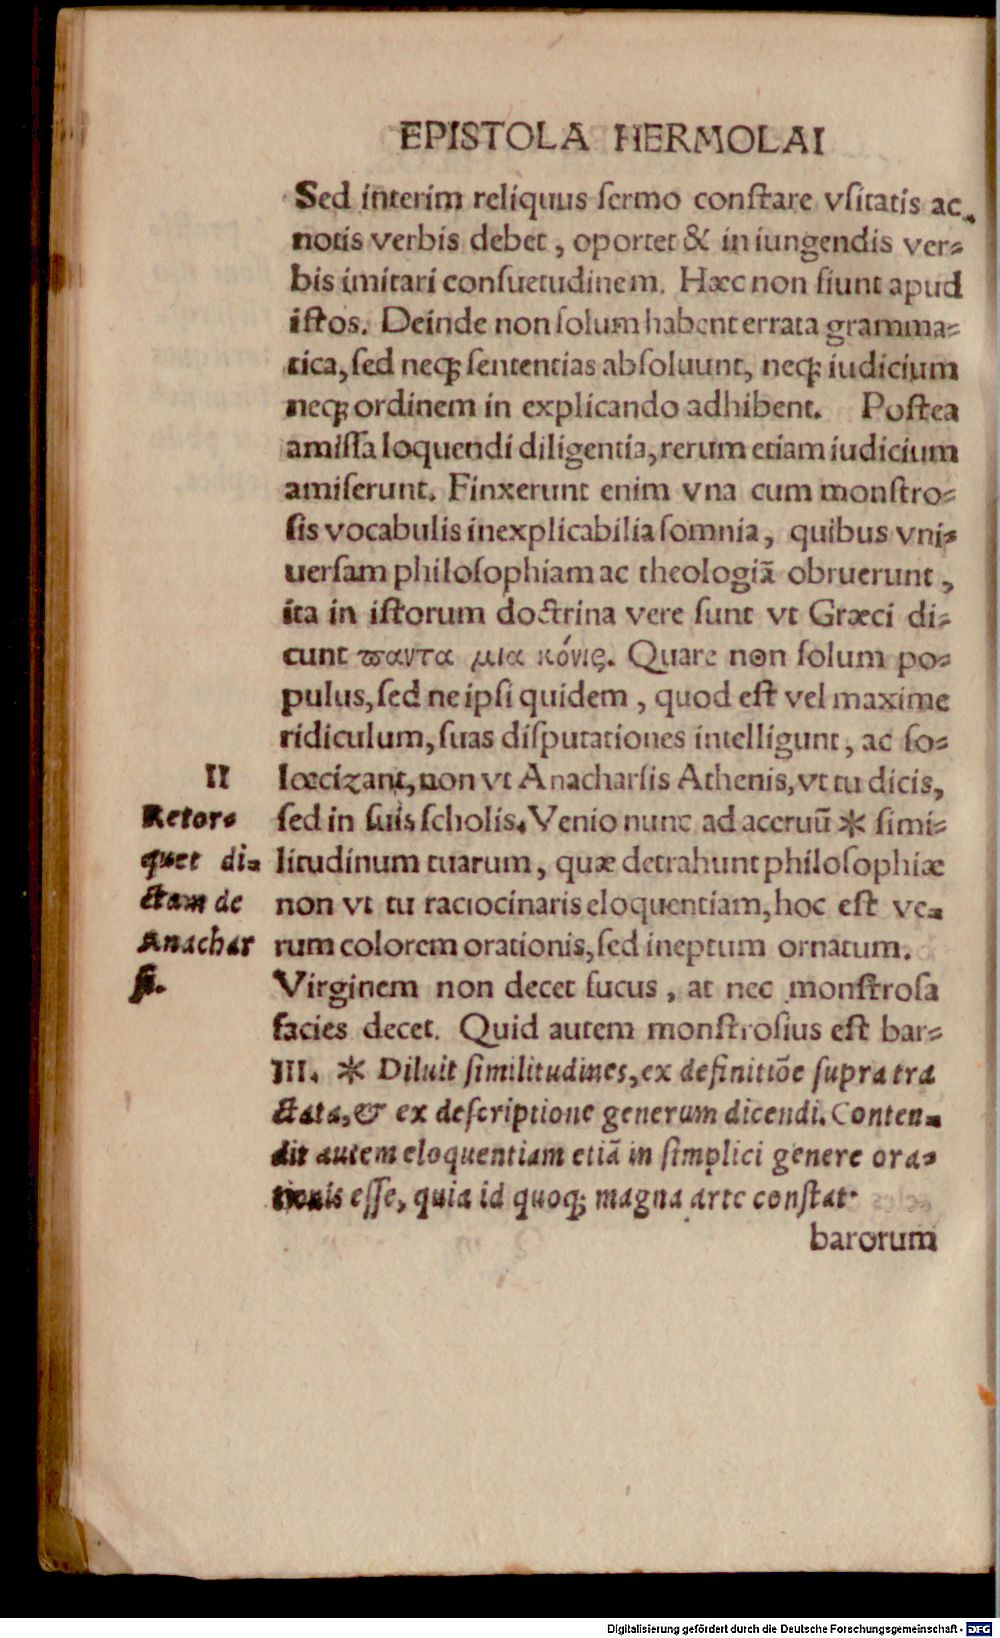 EPISTOLA HERMOLAI
Sed interim reliquus ſermo conſtare vſitatis ac
notis verbis debet, oportet & in iungendis ver⸗
bis imitari conſuetudinem. Hæc non fiunt apud
iſtos. Deinde non ſolum habent errata gramma⸗
tica, ſed neqꝫ ſententias abſoluunt, neqꝫ iudicium
neqꝫ ordinem in explicando adhibent. Poſtea
amiſſa loquendi diligentia, rerum etiam iudicium
amiſerunt. Finxerunt enim vna cum monſtro⸗
ſis vocabulis inexplicabilia ſomnia, quibus vni⸗
uerſam philoſophiam ac theologiā obruerunt,
ita in iſtorum doctrina vere ſunt vt Græci di⸗
cunt ϖαντα μια κόνις. Quare non ſolum po⸗
pulus, ſed ne ipſi quidem, quod eſt vel maxime
ridiculum, ſuas diſputationes intelligunt, ac ſo⸗
II lœcizant, non vt Anacharſis Athenis, vt tu dicis,
Retor⸗ ſed in ſuis ſcholis. Venio nunc ad aceruū * ſimi⸗
quet di⸗ litudinum tuarum, quæ detrahunt philoſophiæ
ctam de non vt tu raciocinaris eloquentiam, hoc eſt ve⸗
Anachar rum colorem orationis, ſed ineptum ornatum.
ſi. Virginem non decet fucus, at nec monſtroſa
facies decet. Quid autem monſtroſius eſt bar⸗
III. * Diluit ſimilitudines, ex definitiōe ſupra tra
ctata, & ex deſcriptione generum dicendi. Conten⸗
dit autem eloquentiam etiā in ſimplici genere ora⸗
tionis eſſe, quia id quoqꝫ magna arte conſtat.
barorum
Digitalisierung gefördert durch die Deutsche Forschungsgemeinschaft - DFG